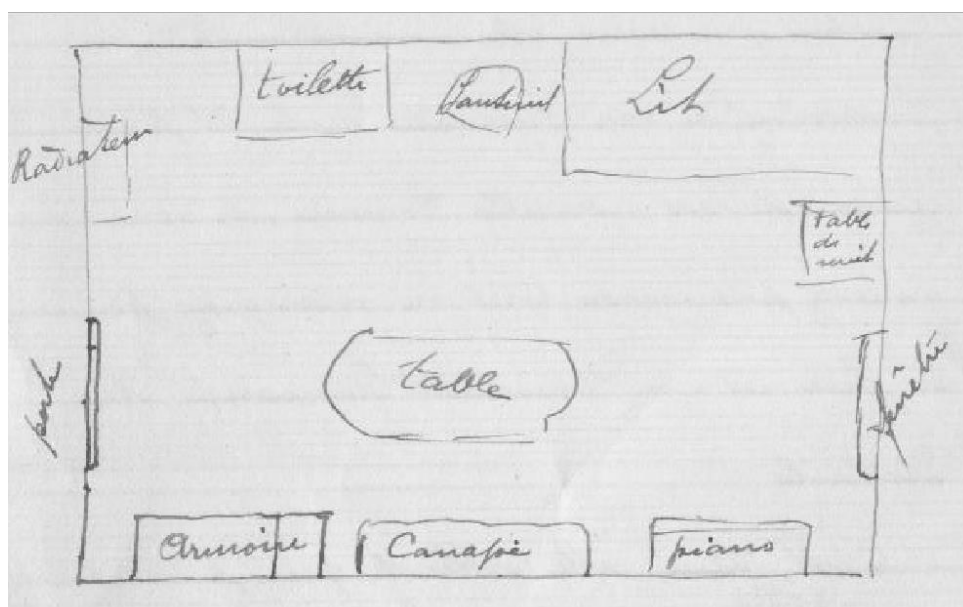 toilette
Fauteuil
Lit
Radiateur
table
de
nuit
porte
table
fenêtre
Armoire
Canapé
piano